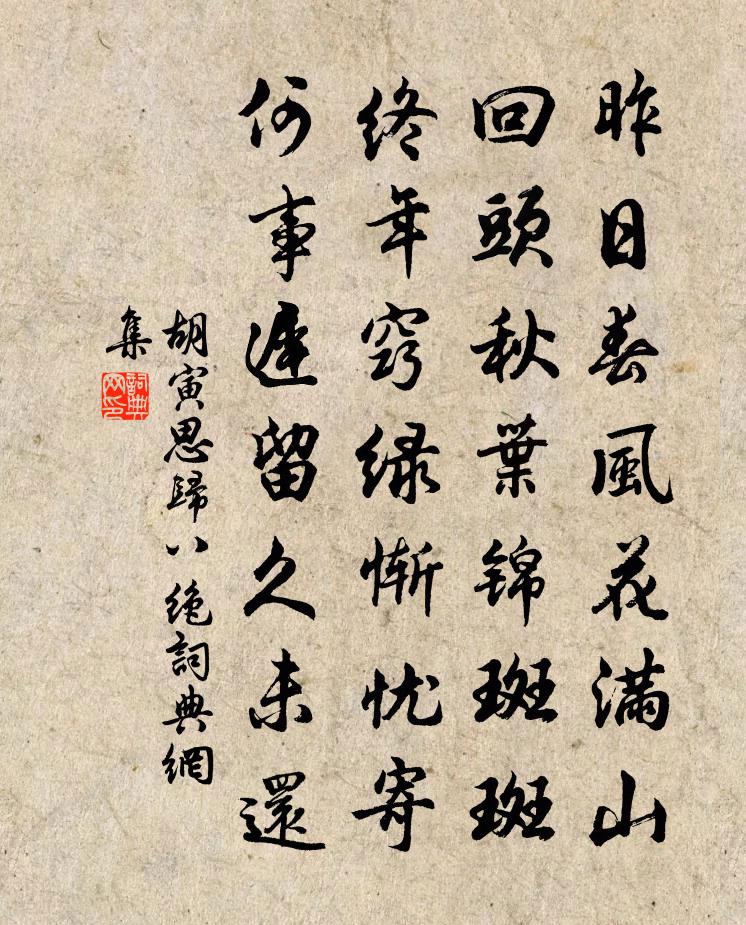 昨日春風花滿山
回頭秋葉锦斑斑
終年窈緑慚忧寄
何事遲留久未還
胡寅思歸八絶詞典網
集
詞典网印